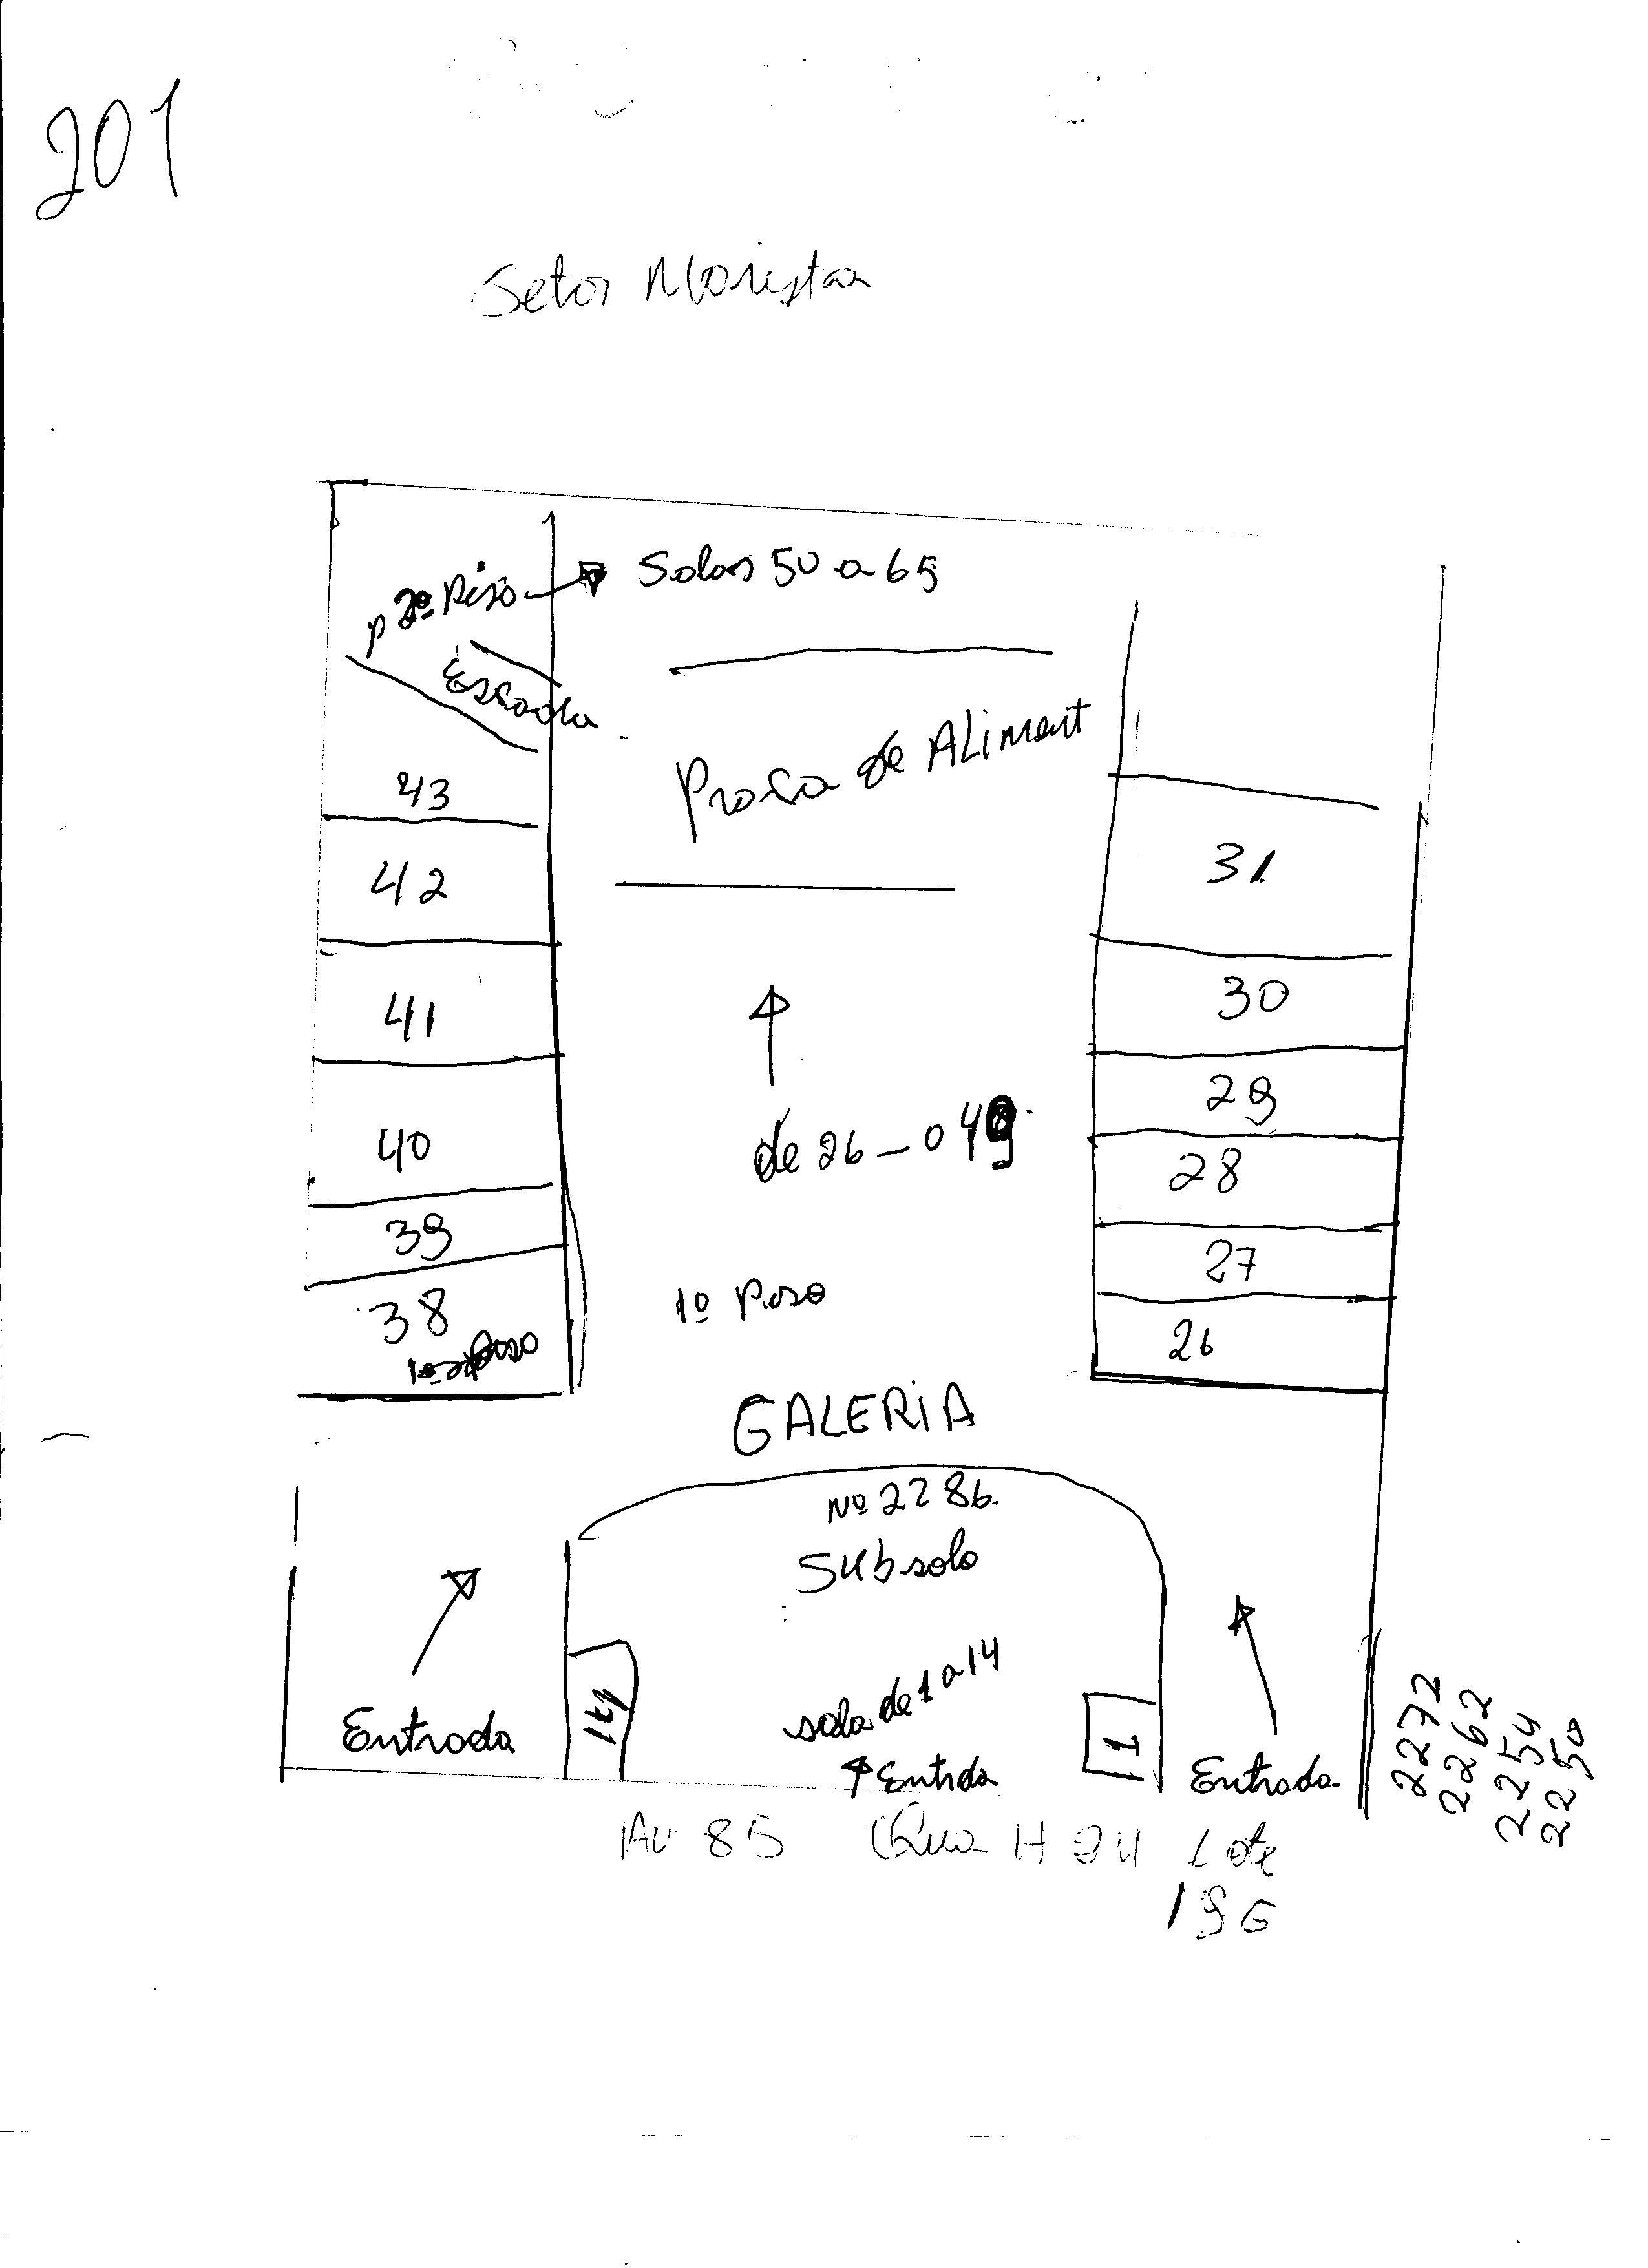 201
Setor Marista
p 2º Piso
Salas 50 a 65
Escada
Praça de ALiment
43
42
31
41
30
29
de 26 - a 49
40
28
39
27
38
1º Piso
26
1º Piso
GALERiA
Nº 2286
Subsolo
sala de 1 a 14
14
1
Entrada
Entrda
Entrada
2272
2262
2254
2250
AV 85 Qua H 24 Lote
19 E